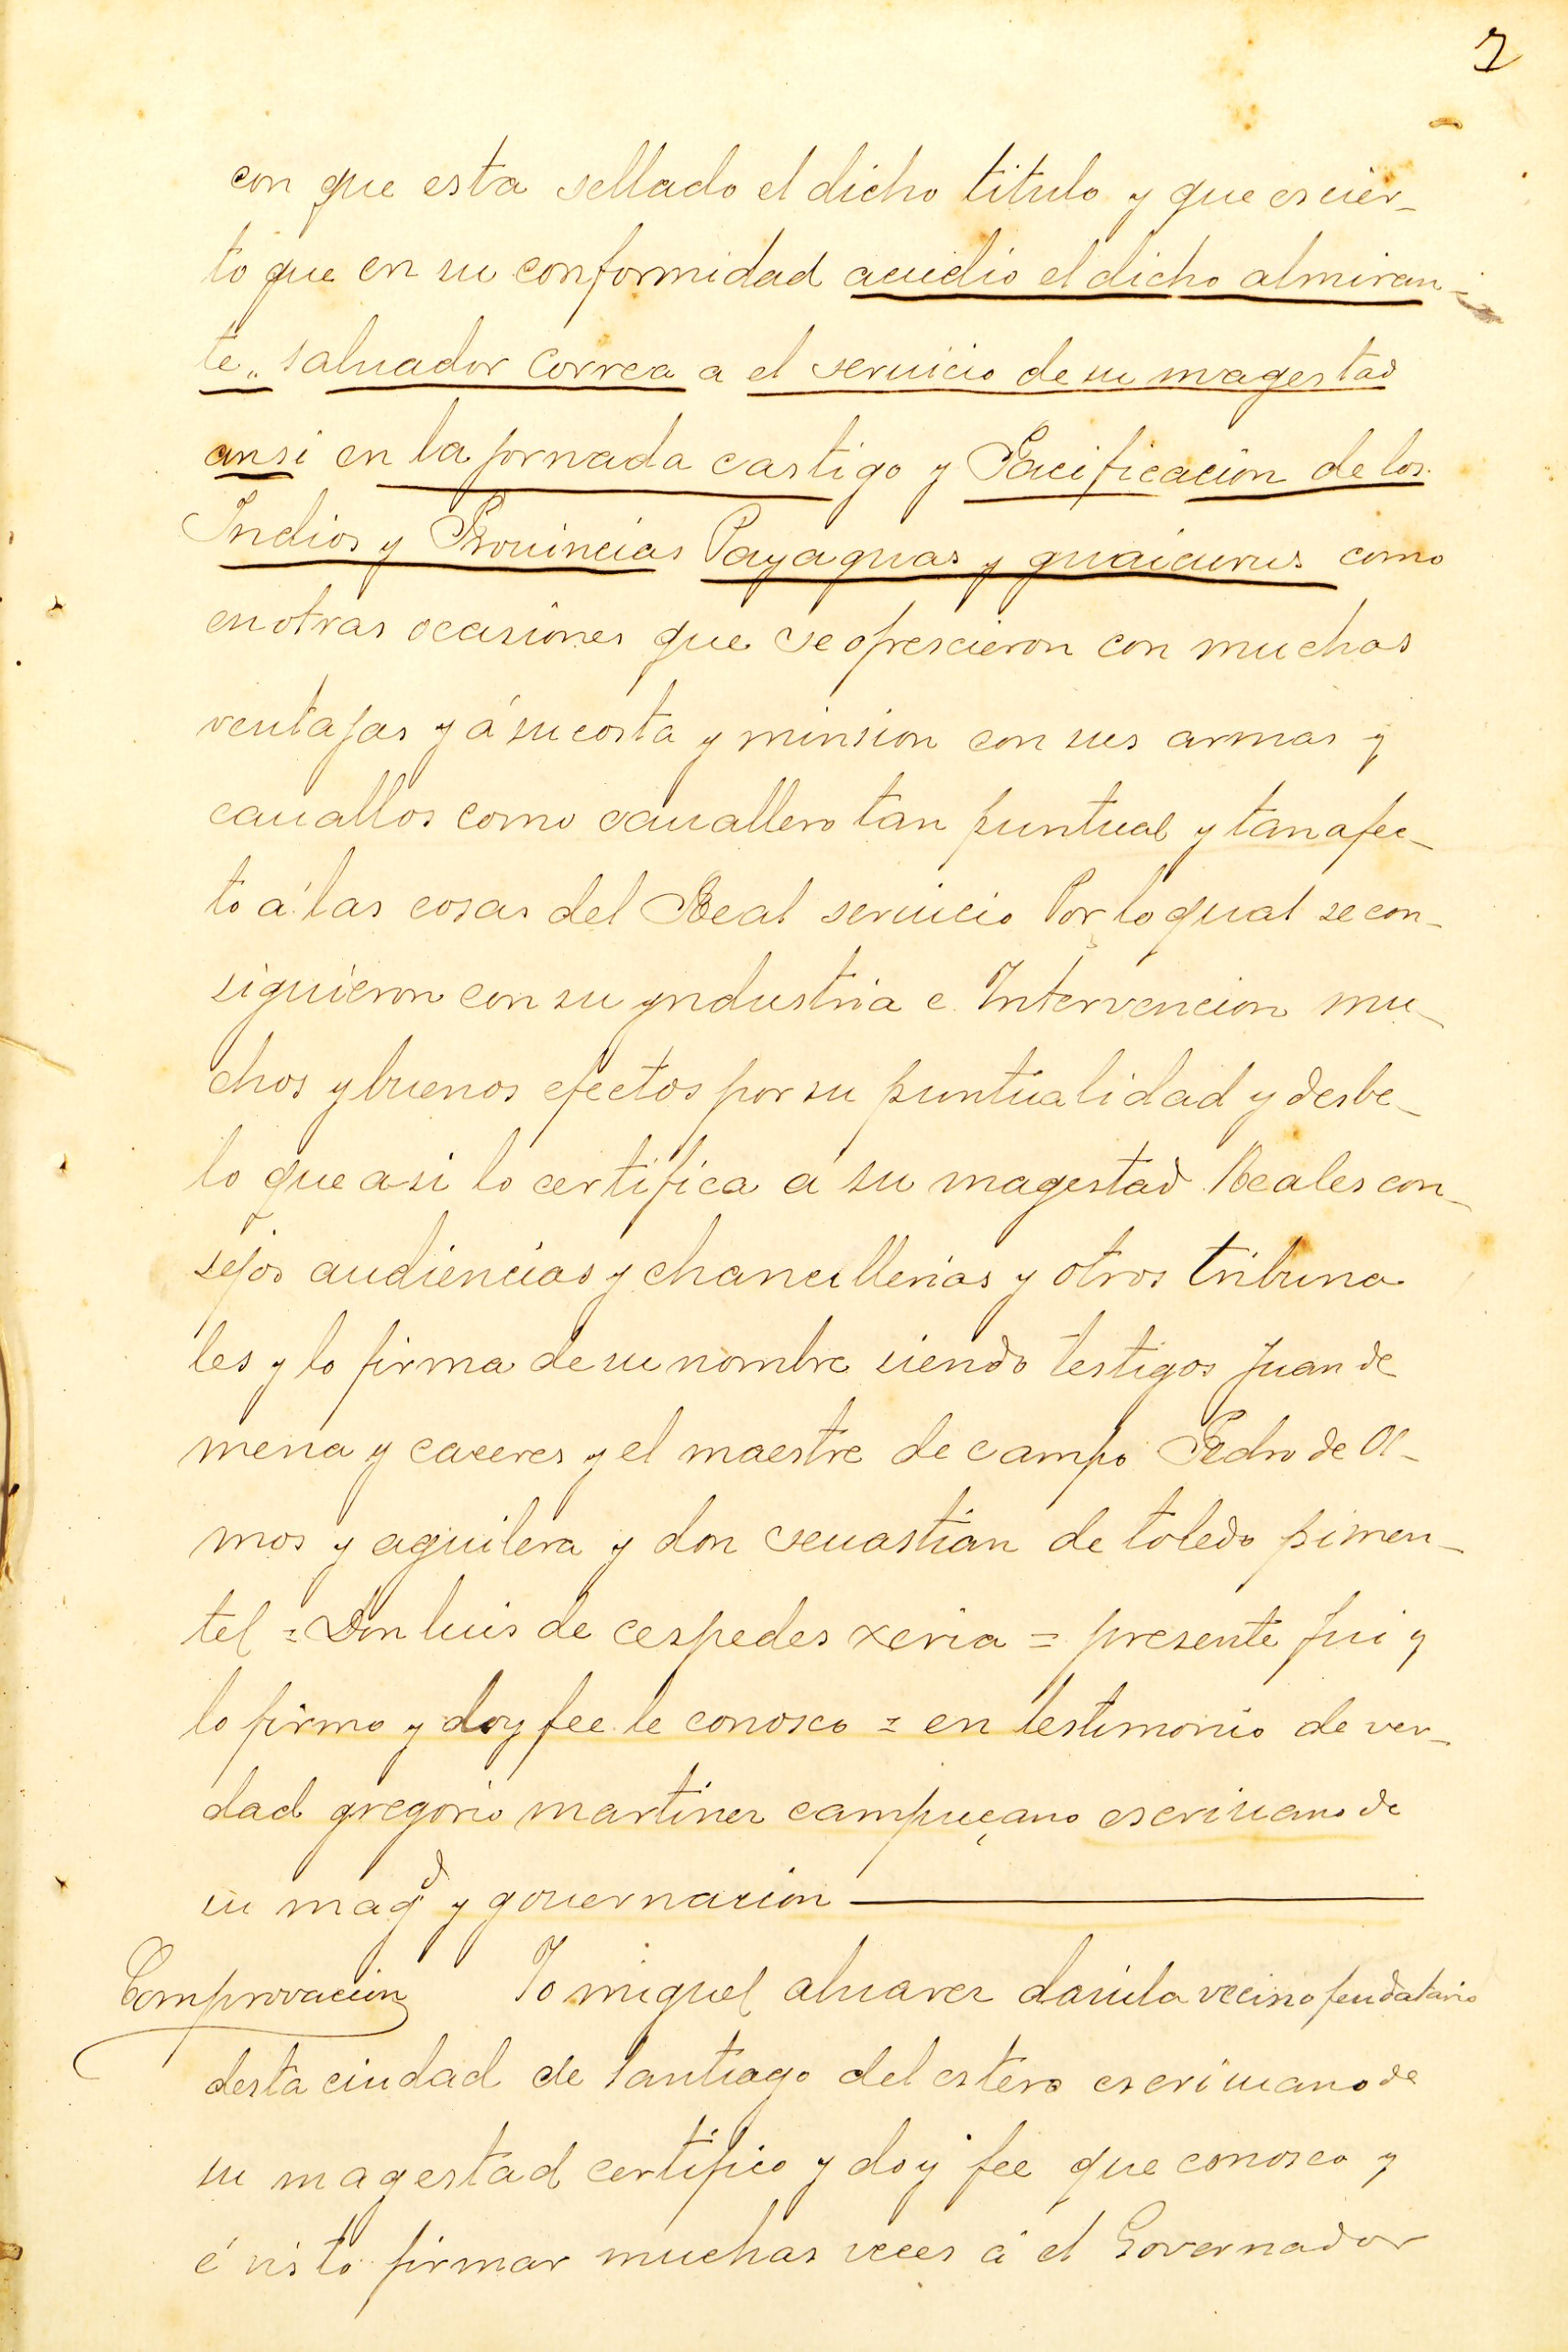 7
con que esta sellado el dicho titulo y que es cier-
to que en su conformidad acudio el dicho almiran-
te,, saluador correa a el seruicio de su magestad
ansi en la jornada castigo y Pacificacion de los
Indios y Prouincias Payaguas y guaicurus como
en otras ocasiones que se ofrescieron con muchas
ventajas y á su costa y minsion con sus armas y
cauallos como cauallero tan puntual y tan afec-
to á las cosas del Real seruicio Por lo qual se con-
siguieron con su yndustria e Intervencion mu-
chos y buenos efectos por su puntualidad y desbe-
lo que asi lo certifica a su magestad Reales con-
sejos audiencias y chancillerias y otros tribuna
les y lo firma de su nombre siendo testigos Juan de
mena y caceres y el maestre de campo Pedro de Ol-
mos y aguilera y don seuastian de toledo pimen-
tel = Don luis de cespedes xeria = presente fui y
lo firmo y doy fee le conosco = en testimonio de ver-
dad gregorio martinez campuçano escriuano de
su magd y gouernacion
Comprovacion Yo miguel aluarez dauila vecino feudatario
desta ciudad de santiago del estero escriuano de
su magestad certifico y doy fee que conosco y
é visto firmar muchas veces á el Governador